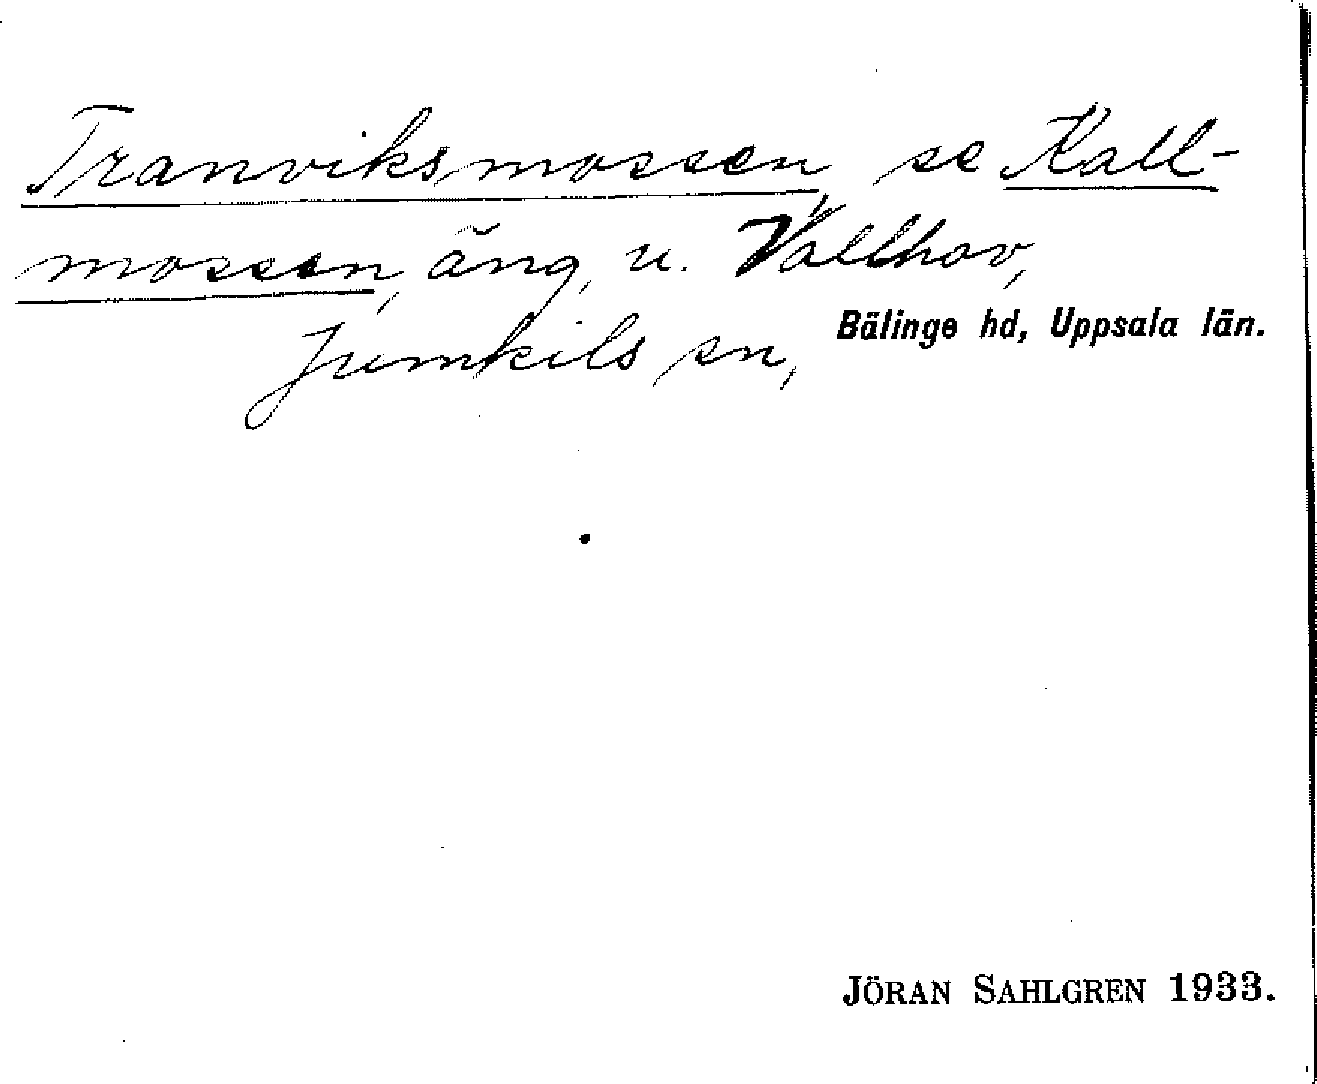 Tranviksmossen, se Kall-
mossen, äng, u. Vallhov,
Jumkils sn,
Bälinge hd, Uppsala län.
JÖRAN SAHLGREN 1933.